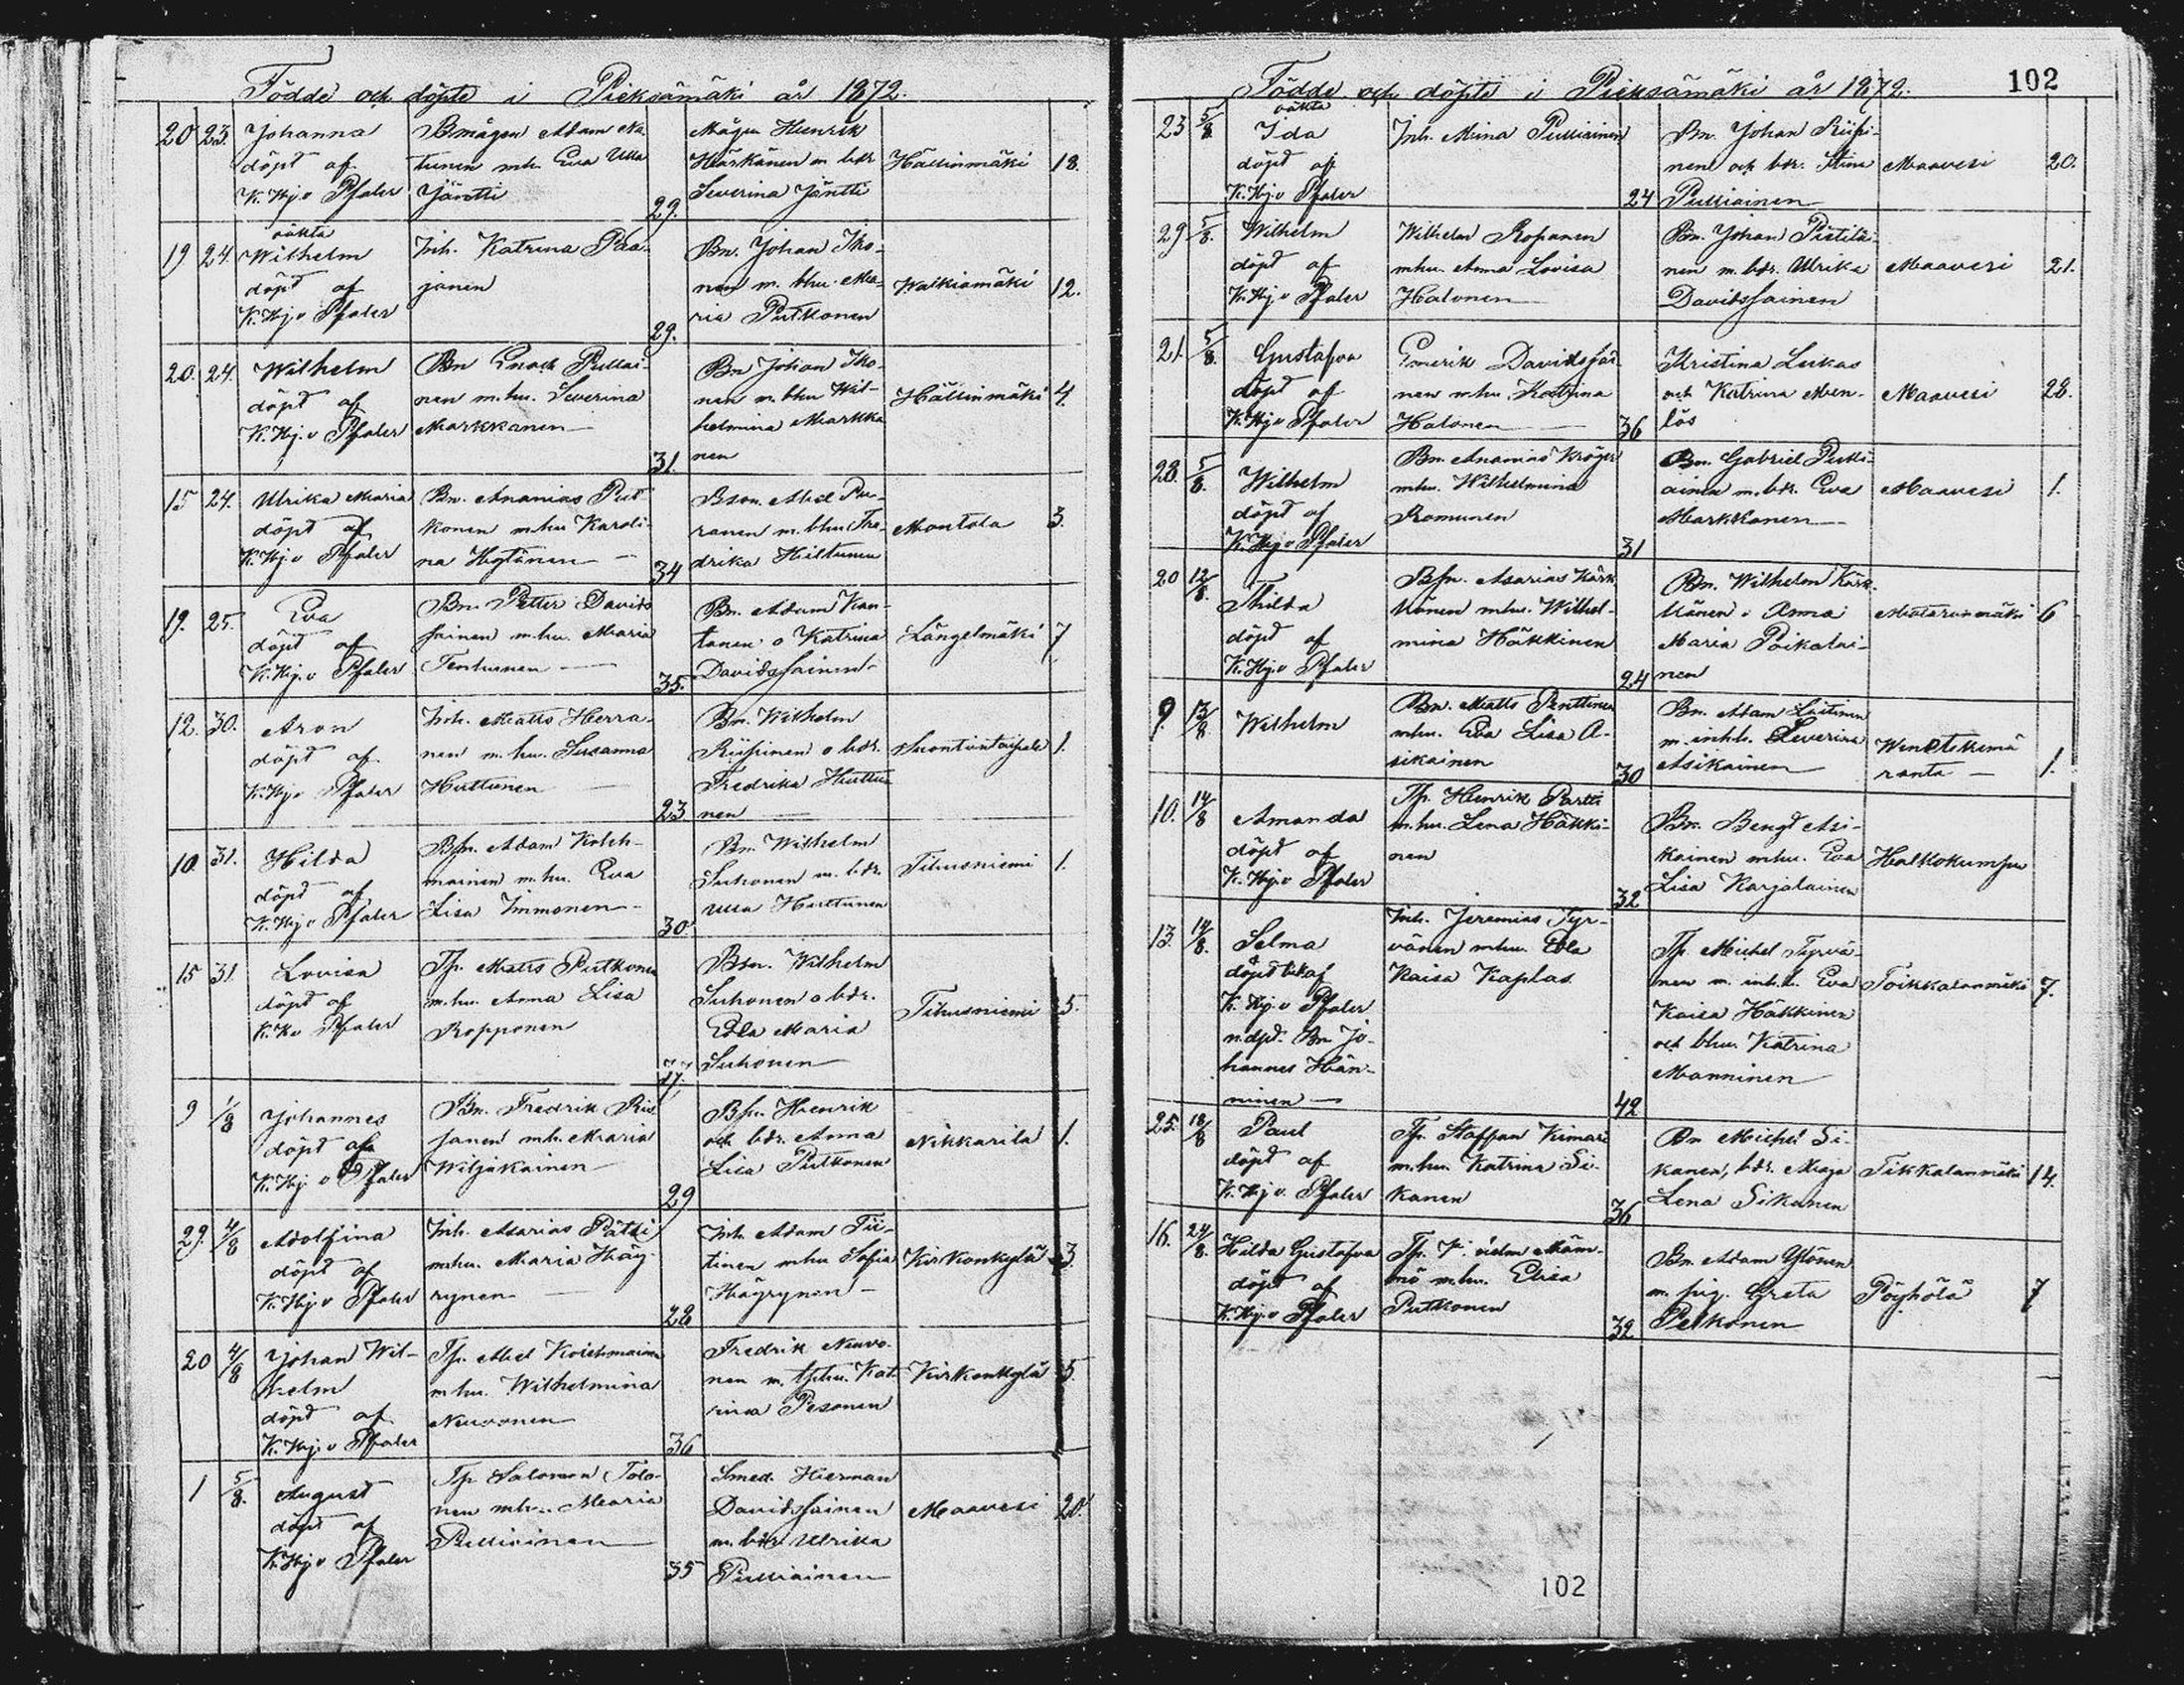 Födde och döpte i Pieksämäki år 1872.
20 23. Johanna
döpt af
K. Hj. v Pfaler
Bmågen Adam Ma-
tunen mh. Eva Ulla
Jäntti
29.
Mågen Henrik
Härkönen m bdr
Severina Jäntti
Hällinmäki 18.
19 24. oäkta
Wilhelm
döpt af
K. Hj. v Pfaler
Inh. Katrina Paa-
janen
29.
Bn. Johan Iko-
nen m. bhu. Ma-
ria Putkonen
Walkiamäki 12.
20. 24. Wilhelm
döpt af
K. Hj. v Pfaler
Bn Enoch Pulliai-
nen m.hu. Severina
Markkanen
31.
Bn Johan Iko-
nen m bhu Wil-
helmina Markka
nen
Hällinmäki 4.
15 24. Ulrika Maria
döpt af
K. Hj. v Pfaler
Bn. Ananias Put-
konen mhu Karoli-
na Hytönen
34
Bson. Abel Pu-
ranen m. bhu Fre-
drika Hiltunen
Montola 3.
19. 25. Eva
döpt af
K. Hj. v Pfaler
Bn. Petter Davids
sainen m.hu. Maria
Tenhunen
35.
Bn. Adam Kan-
tanen o Katrina
Davidssainen
Längelmäki 7
12. 30. Aron
döpt af
K. Hj. v Pfaler
Inh. Matts Herra-
nen m. hu. Susanna
Huttunen
23
Bn. Wilhelm
Riipinen o bdr.
Fredrika Huttu
nen
Suontientaipale 1.
10. 31. Hilda
döpt af
K. Hj. v Pfaler
Bfn. Adam Koleh-
mainen m.hu. Eva
Lisa Immonen
30
Bn. Wilhelm
Suhonen m. bdr.
Ulla Huttunen
Tihusniemi 1.
15 31. Lovisa
döpt af
K. H. v Pfaler
Tp. Matts Putkonen
m.hu. Anna Lisa
Ropponen
27.
Bson. Wilhelm
Suhonen o bdr.
Edla Maria
Suhonen
Tihusniemi 5.
9 1/8 Johannes
döpt af
K. Hj. v Pfaler
Bn. Fredrik Ris
sanen mh. Maria
Wiljakainen
29
Bfn. Henrik
och bdr. Anna
Lisa Putkonen
Nikkarila 1.
29. 4/8 Adolfina
döpt af
K. Hj. v Pfaler
Inh. Asarias Pätsi
mhu. Maria Häy-
rynen
28
Inh. Adam Tii-
tinen mhu Sofia
Häyrynen
Kirkonkylä 3.
20 4/8 Johan Wil-
helm
döpt af
K. Hj. v Pfaler
Tp. Abel Kolehmainen
m hu. Wilhelmina
Neuvonen
36
Fredrik Neuvo-
nen m. tphu. Kat-
rina Pesonen
Kirkonkylä 5.
1 5/8. August
döpt af
K. Hj v Pfaler
Tp. Salomon Tolo-
nen mhu. Maria
Pulliainen
35
Smed. Herman
Davidssainen
m. bdr Ulrika
Pulliainen
Maavesi 20.
Födde och döpte i Pieksämäki år 1872.
102
23 5/8 oäkta
Ida
döpt af
K. Hj. v Pfaler
Inh. Mina Pulliainen
24
Bn. Johan Riipi-
nen och bdr. Stina
Pulliainen
Maavesi 20.
29 5/8. Wilhelm
döpt af
K. Hj. v Pfaler
Wilhelm Ropanen
mhu. Anna Lovisa
Halonen
Bn. Johan Pistiläi-
nen m. bdr. Ulrika
Davidssainen
Maavesi 21.
21. 5/8. Gustafva
döpt af
K. Hj. v Pfaler
Emerik Davidssai-
nen mhu. Katrina
Halonen
36
Kristina Lukas
och Katrina Men-
lös
Maavesi 28.
28. 5/8. Wilhelm
döpt af
K. Hj. v Pfaler
Bn. Ananias Kröger
mhu. Wilhelmina
Romunen
31
Bn. Gabriel Pulli-
ainen m. bdr. Eva
Markkanen
Maavesi 1.
20 12/8. Thilda
döpt af
K. Hj. v Pfaler
Bfn. Asarias Kärk
känen mhu. Wilhel-
mina Häkkinen
24
Bn. Wilhelm Kärk-
känen o Anna
Maria Poikalai-
nen
6
9. 13/8 Wilhelm
Bn. Matts Penttinen
mhu. Eva Lisa A-
sikainen
30
Bn. Adam Laitinen
m. inh.h. Severina
Asikainen
ranta 1.
10. 14/8 Amanda
döpt af
K. Hj. v Pfaler
Tp. Henrik Partti
m.hu. Lena Häkki-
nen
32
Bn. Bengt Asi-
kainen mhu. Eva
Lisa Karjalainen
Hallokumpu
13. 14/8. Selma
döpt af
K. Hj. v Pfaler
n.dpt. Bn Jo-
hannes Hän-
ninen
Inh. Jeremias Tyr-
vänen mhu. Edla
Kaisa Kaplas
42
Tp. Michel Tyrvä-
nen m. inh.h. Eva
Kaisa Häkkinen
och bhu. Katrina
Manninen
Toikkalanmäki 7.
25. 18/8 Paul
döpt af
K. Hj v. Pfaler
Tp. Staffan Kimari
m.hu. Katrina Si-
kanen
36
Bn Michel Si-
kanen, bdr. Maja
Lena Sikanen
Tikkalanmäki 14.
16. 24/8. Hilda Gustafva
döpt af
K. Hj. v Pfaler
Tp. Mäm-
mö m.hu. Elisa
Putkonen
32
Bn. Adam Ylönen
m. pig. Greta
Pelkonen
Pöyhölä 7
102